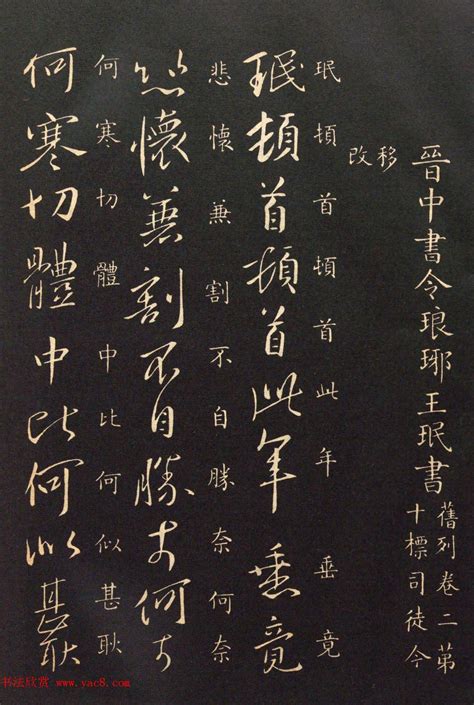 晉中書令琅琊王珉書
舊列卷二第
十標司徒今
移
改
珉頓首頓首此年垂竟
珉頓首頓首此年垂竟
悲懷兼割不自勝奈何奈
悲懷兼割不自勝奈何奈
何寒切體中比何似甚耿
何寒切體中比何似甚耿
书法欣赏 www.yac8.com